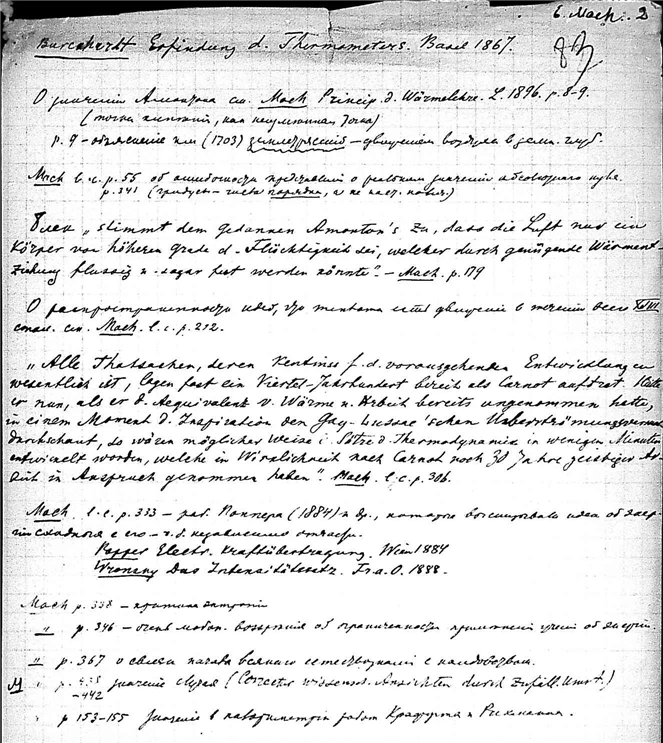 6. Mach. 2
Burckhardt Erfindung d. Thermometers. Basel 1867.
О значении Амонтона см. Mach Princip. d. Wärmelehre. L. 1896. p. 8-9.
(точка кипения, как неизменная точка)
p. 9 – объяснение им (1703) землетрясений – движением воздуха в земн.
Mach l. c. p. 55 об ошибочности представлений о реальном значении абсолютного нуля.
p. 341 (градусы – числа порядка, а не
„stimmt dem Gedanken Amonton's zu, dass die Luft nur ein
Körper von höherem Grade d. Flüchtigkeit sei, welcher durch genügende Wärmeent-
ziehung flüssig u. sogar fest werden könnte". – Mach. p. 179
О распространенности идей, что теплота есть движение в течении всего XVIII
стол. см. Mach. l. c. p. 212.
„Alle Thatsachen, deren Kentniss f. d. vorausgehenden Entwicklungen
wesentlich ist, lagen fast ein Viertel-Jahrhundert bereit als Carnot auftrat. Hätte
er nun, als er d. Aequivalenz v. Wärme u. Arbeit bereits angenommen hatte,
in einem Moment d. Inspiration den Gay-Lussac'schen Ueberströmungsversuch
durchschaut, so wären möglicher Weise i. Sätze d. Thermodynamik in wenigen Minuten
entwickelt worden, welche in Wirklichkeit nach Carnot noch 30 Jahre geistiger Ar-
beit in Anspruch genommen haben". Mach. l. c. p. 306.
Mach. l. c. p. 333 – раб. Поппера (1884) и др., которые высказывали идеи об энер-
гии сходныя с его – т. д. независимо отчасти.
Popper Electr. Kraftübertragung. Wien 1884
Wronsky Das Intensitätsgesetz. Fr. a. O. 1888.
Mach p. 338 – критика энтропии
„ p. 346 – очень любоп. возражения об ограниченности применений учения об энергии.
„ p. 367 о связи начала всякого естествознания с
M
– 442 значение случая (Correctur wissensch. Ansichten durch zufäll. Umst.)
p 153–155 Значение в калориметрии работ Крафта и Рихманна.